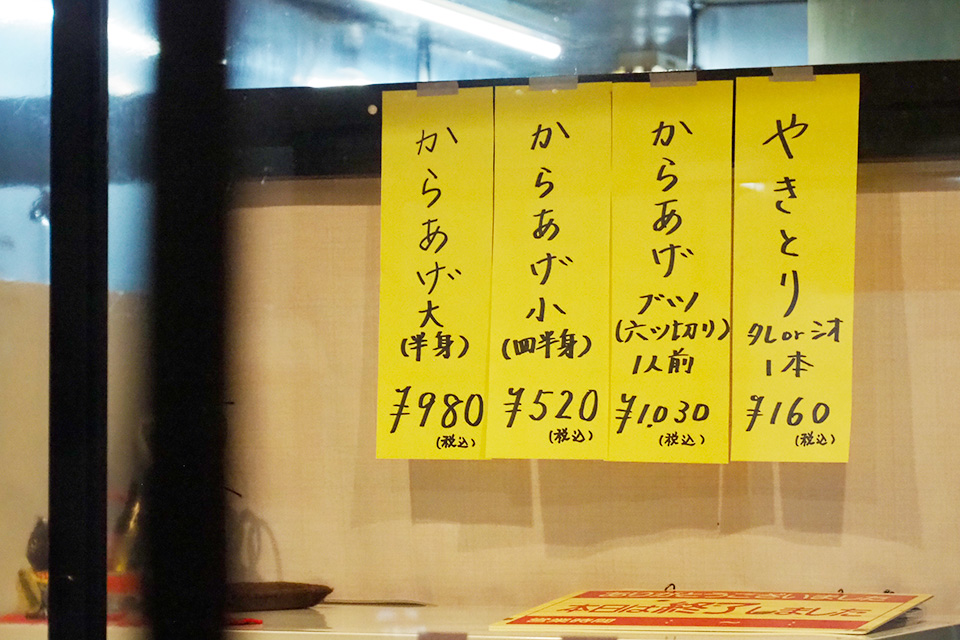 やきとり
タレorシオ
1本
¥160
(税込)
からあげ
ブツ
(六ツ切り)
1人前
¥1,030
(税込)
からあげ
小
(四半身)
¥520
(税込)
からあげ
大
(半身)
¥980
(税込)
本日は終了しました
営業時間